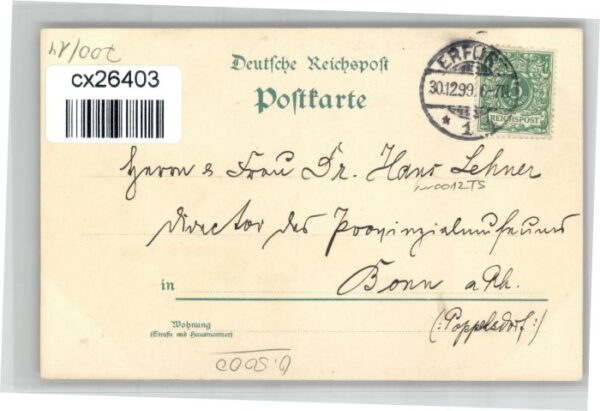 200/14
cx26403
Deutsche Reichspost
Postkarte
ERFURT
30.12.99. 6-7N.
* 1
5
REICHSPOST
Herrn & Frau Dr. Hans Lehner
0012TS
Director des Provinzialmuseums
in Bonn a Rh.
(:Poppelsdorf:)
Wohnung
(Straße und Hausnummer)
0.5000